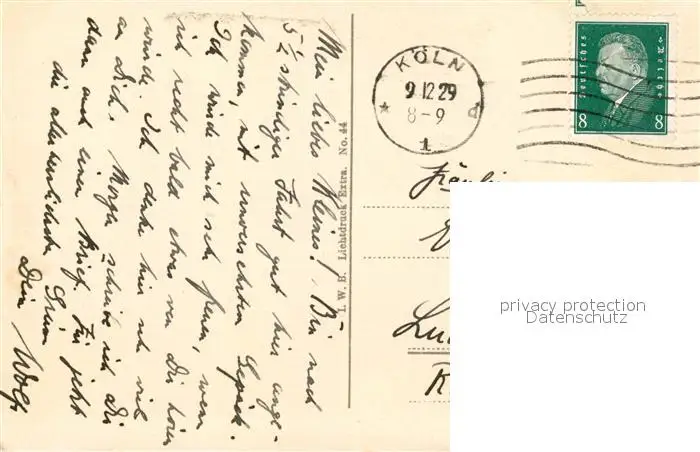 Mein liebes Kleines! Bin nach
5 1/2 stündiger Fahrt gut hier ange-
kommen, mit unversehrtem Gepäck.
Ich würde mich sehr freuen, wenn
ich recht bald etwas von Dir hören
würde. Ich denke hier sehr viel
an Dich. Morgen schreibe ich Dir
dann auch einen Brief. Für jetzt
die allerherzlichsten Grüsse
Dein Wolf
I. W. B. Lichtdruck Extra. No. 44
KÖLN
9.12.29
8-9
1
Deutsches Reich
8 8
privacy protection
Datenschutz